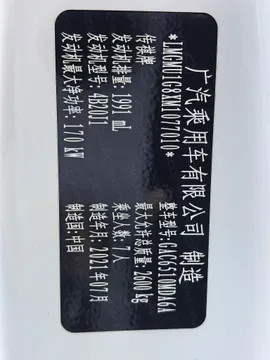 广汽乘用车有限公司 制造
*LMGMU1G8XM1077010*
传祺牌 整车型号:GAC6510MDA6A
发动机排量:1991 mL 最大允许总质量:2600 kg
发动机型号:4B20J1 乘坐人数:7人
发动机最大净功率:170 kW 制造年月:2021年07月
制造国:中国